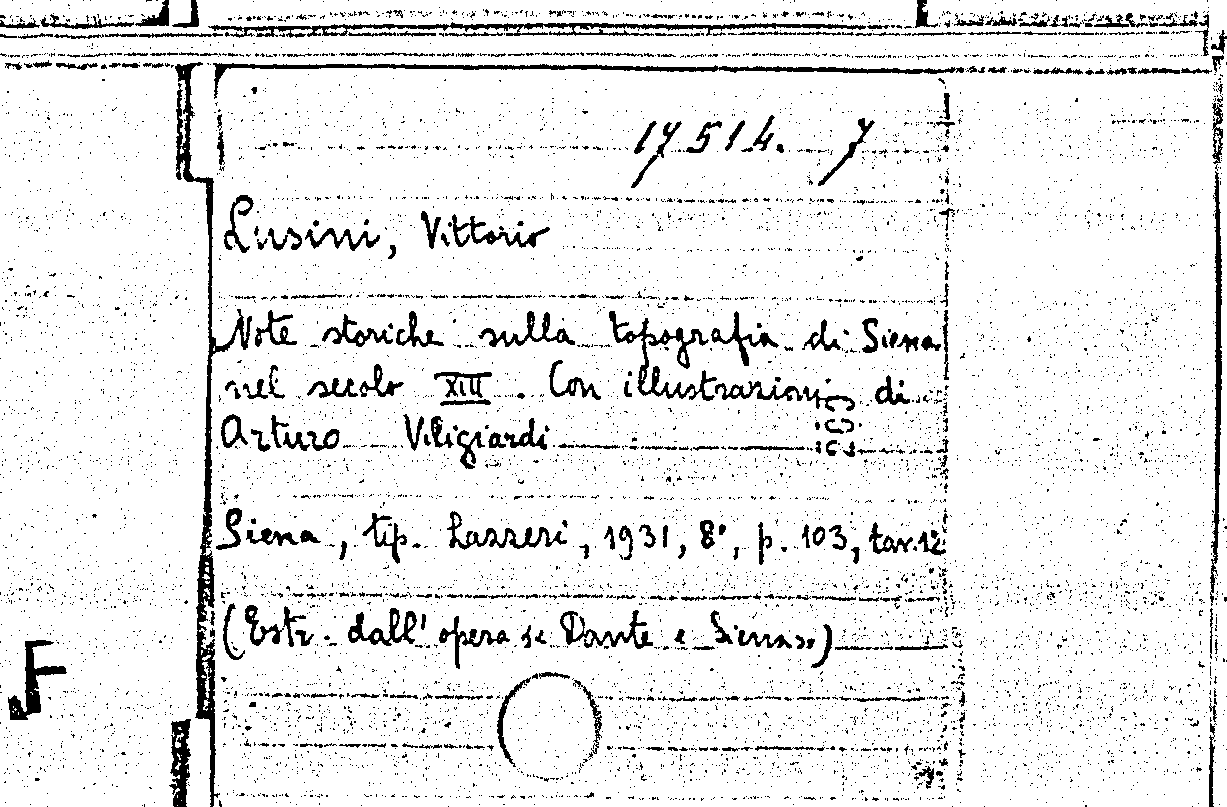 17514. 7
Lusini, Vittorio
Note storiche sulla topografia di Siena
nel secolo XIII. Con illustrazioni di
Arturo Viligiardi
Siena, tip. Lazzeri, 1931, 8°, p. 103, tav. 12
(Estr. dall'opera « Dante e Siena »)
F